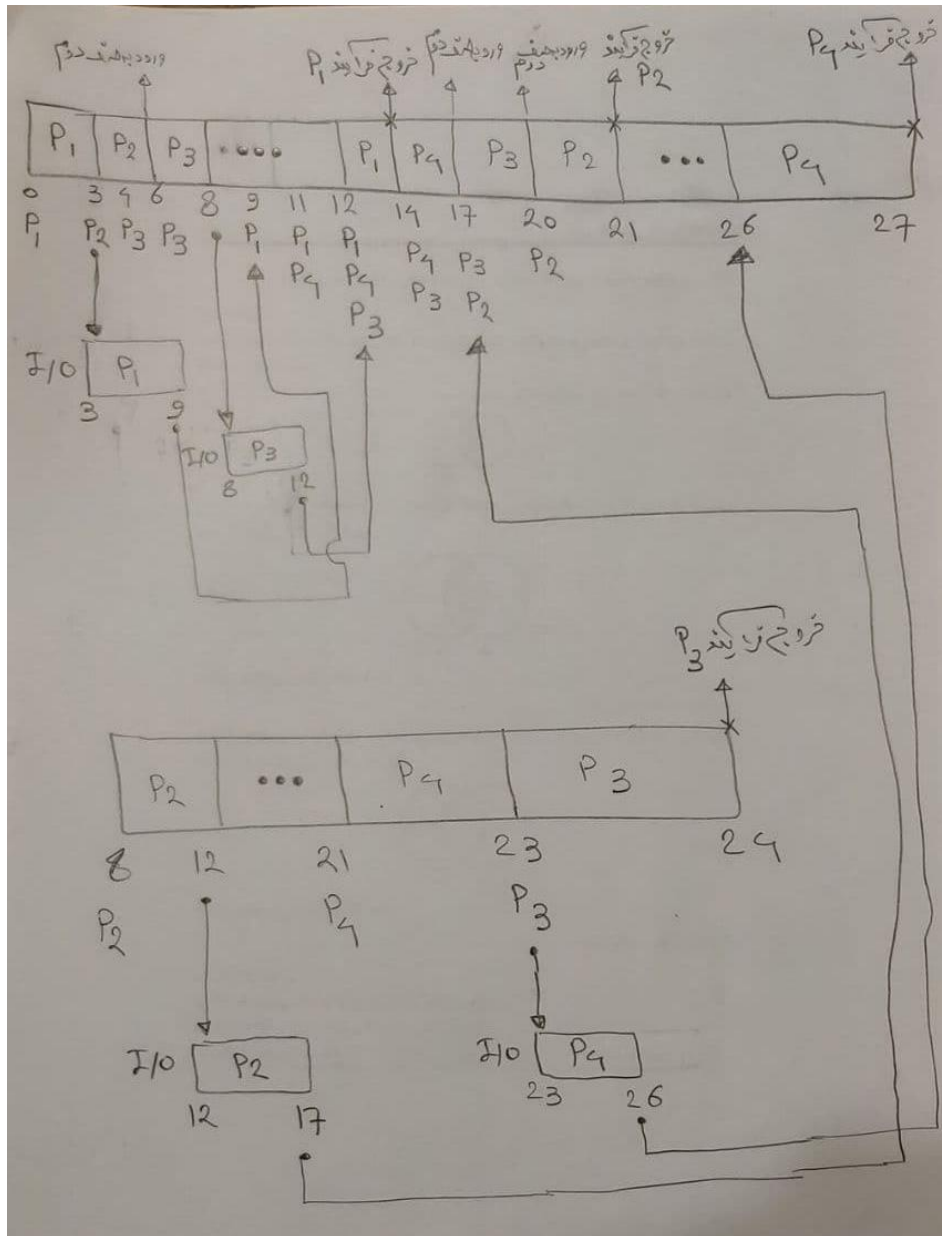 ورود به صف دوم
خروج فرآیند P1
ورود به صف دوم
ورود به صف دوم
خروج فرآیند P2
خروج فرآیند P4
P1 P2 P3 .... P1 P4 P3 P2 ... P4
0 3 4 6 8 9 11 12 14 17 20 21 26 27
P1 P2 P3 P3 P1 P1 P1 P4 P3 P2
P4 P4 P3 P2
P3
I/O P1
3 9
I/O P3
8 12
خروج فرآیند P3
P2 ... P4 P3
8 12 21 23 24
P2 P4 P3
I/O P2
12 17
I/O P4
23 26